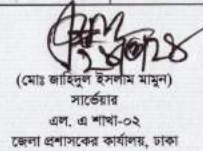 (মোঃ জাহিদুল ইসলাম মামুন)
সার্ভেয়ার
এল. এ শাখা-০২
জেলা প্রশাসকের কার্যালয়, ঢাকা